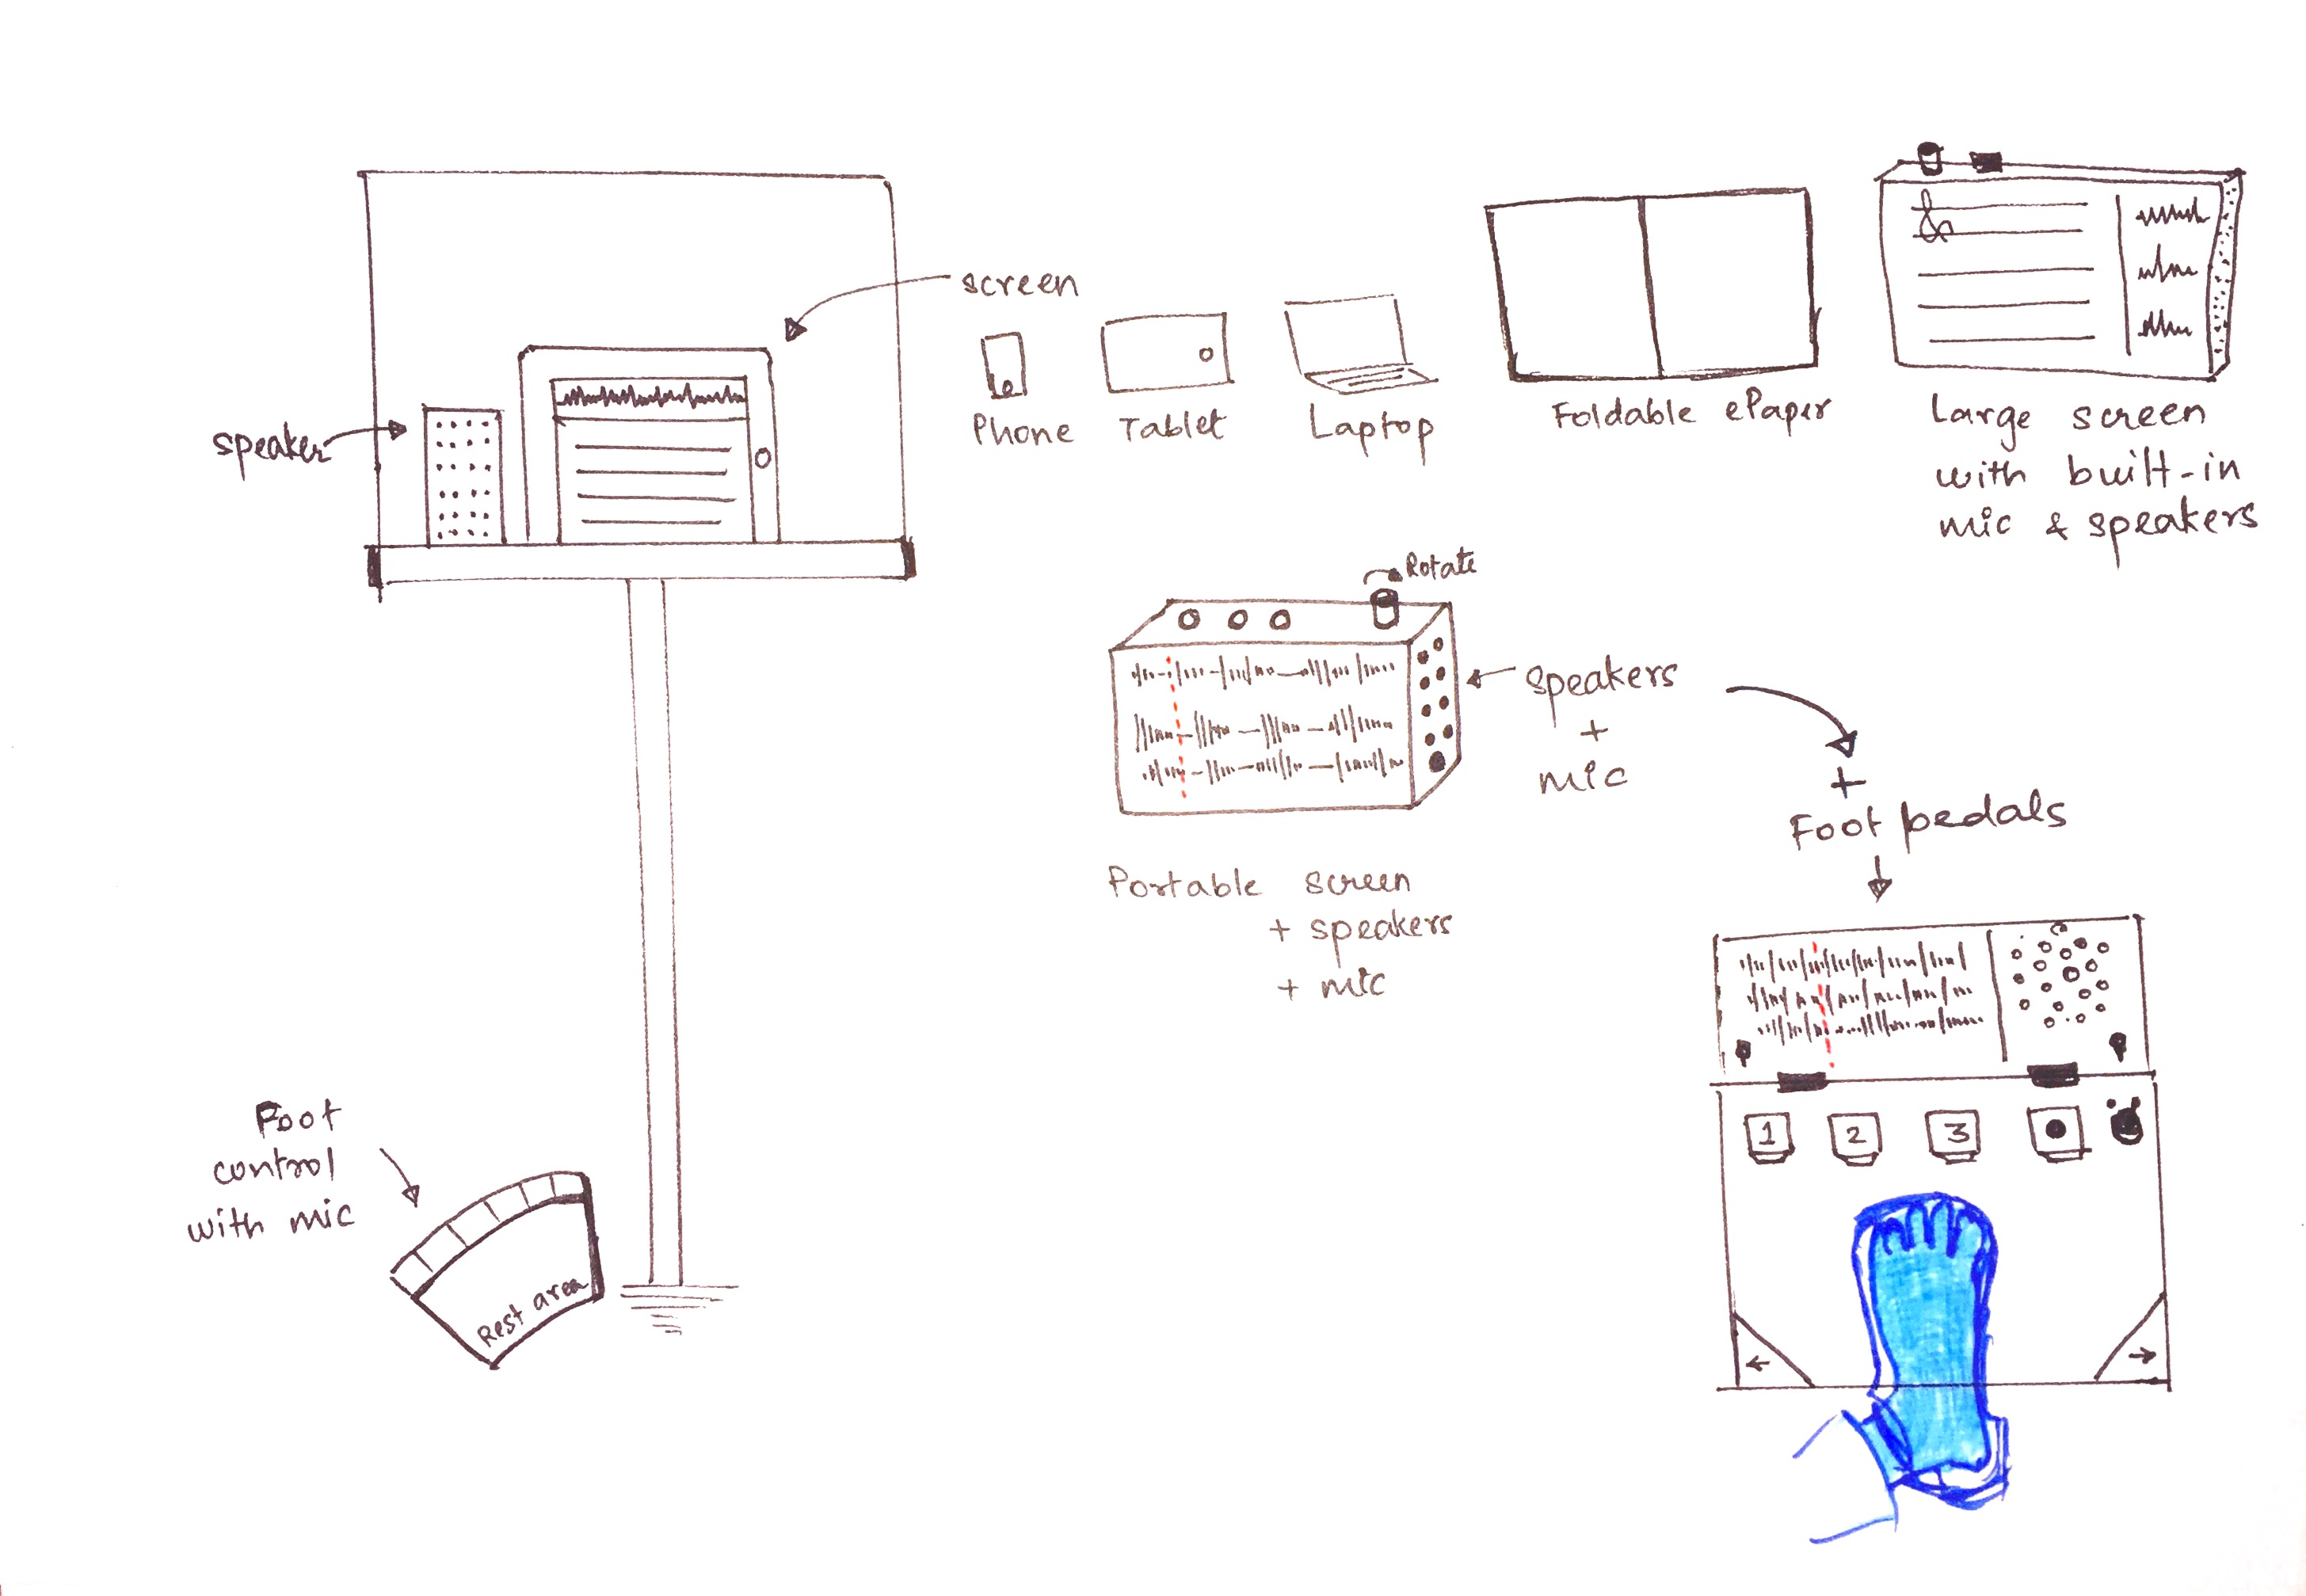 screen
speaker
Phone
Tablet
Laptop
Foldable ePaper
Large screen
with built-in
mic & speakers
Rotate
speakers
+
mic
+
Foot pedals
Portable screen
+ speakers
+ mic
1 2 3
Foot
control
with mic
Rest area